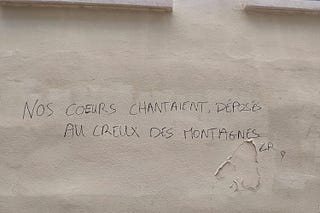 NOS COEURS CHANTAIENT, DÉPOSÉS
AU CREUX DES MONTAGNES